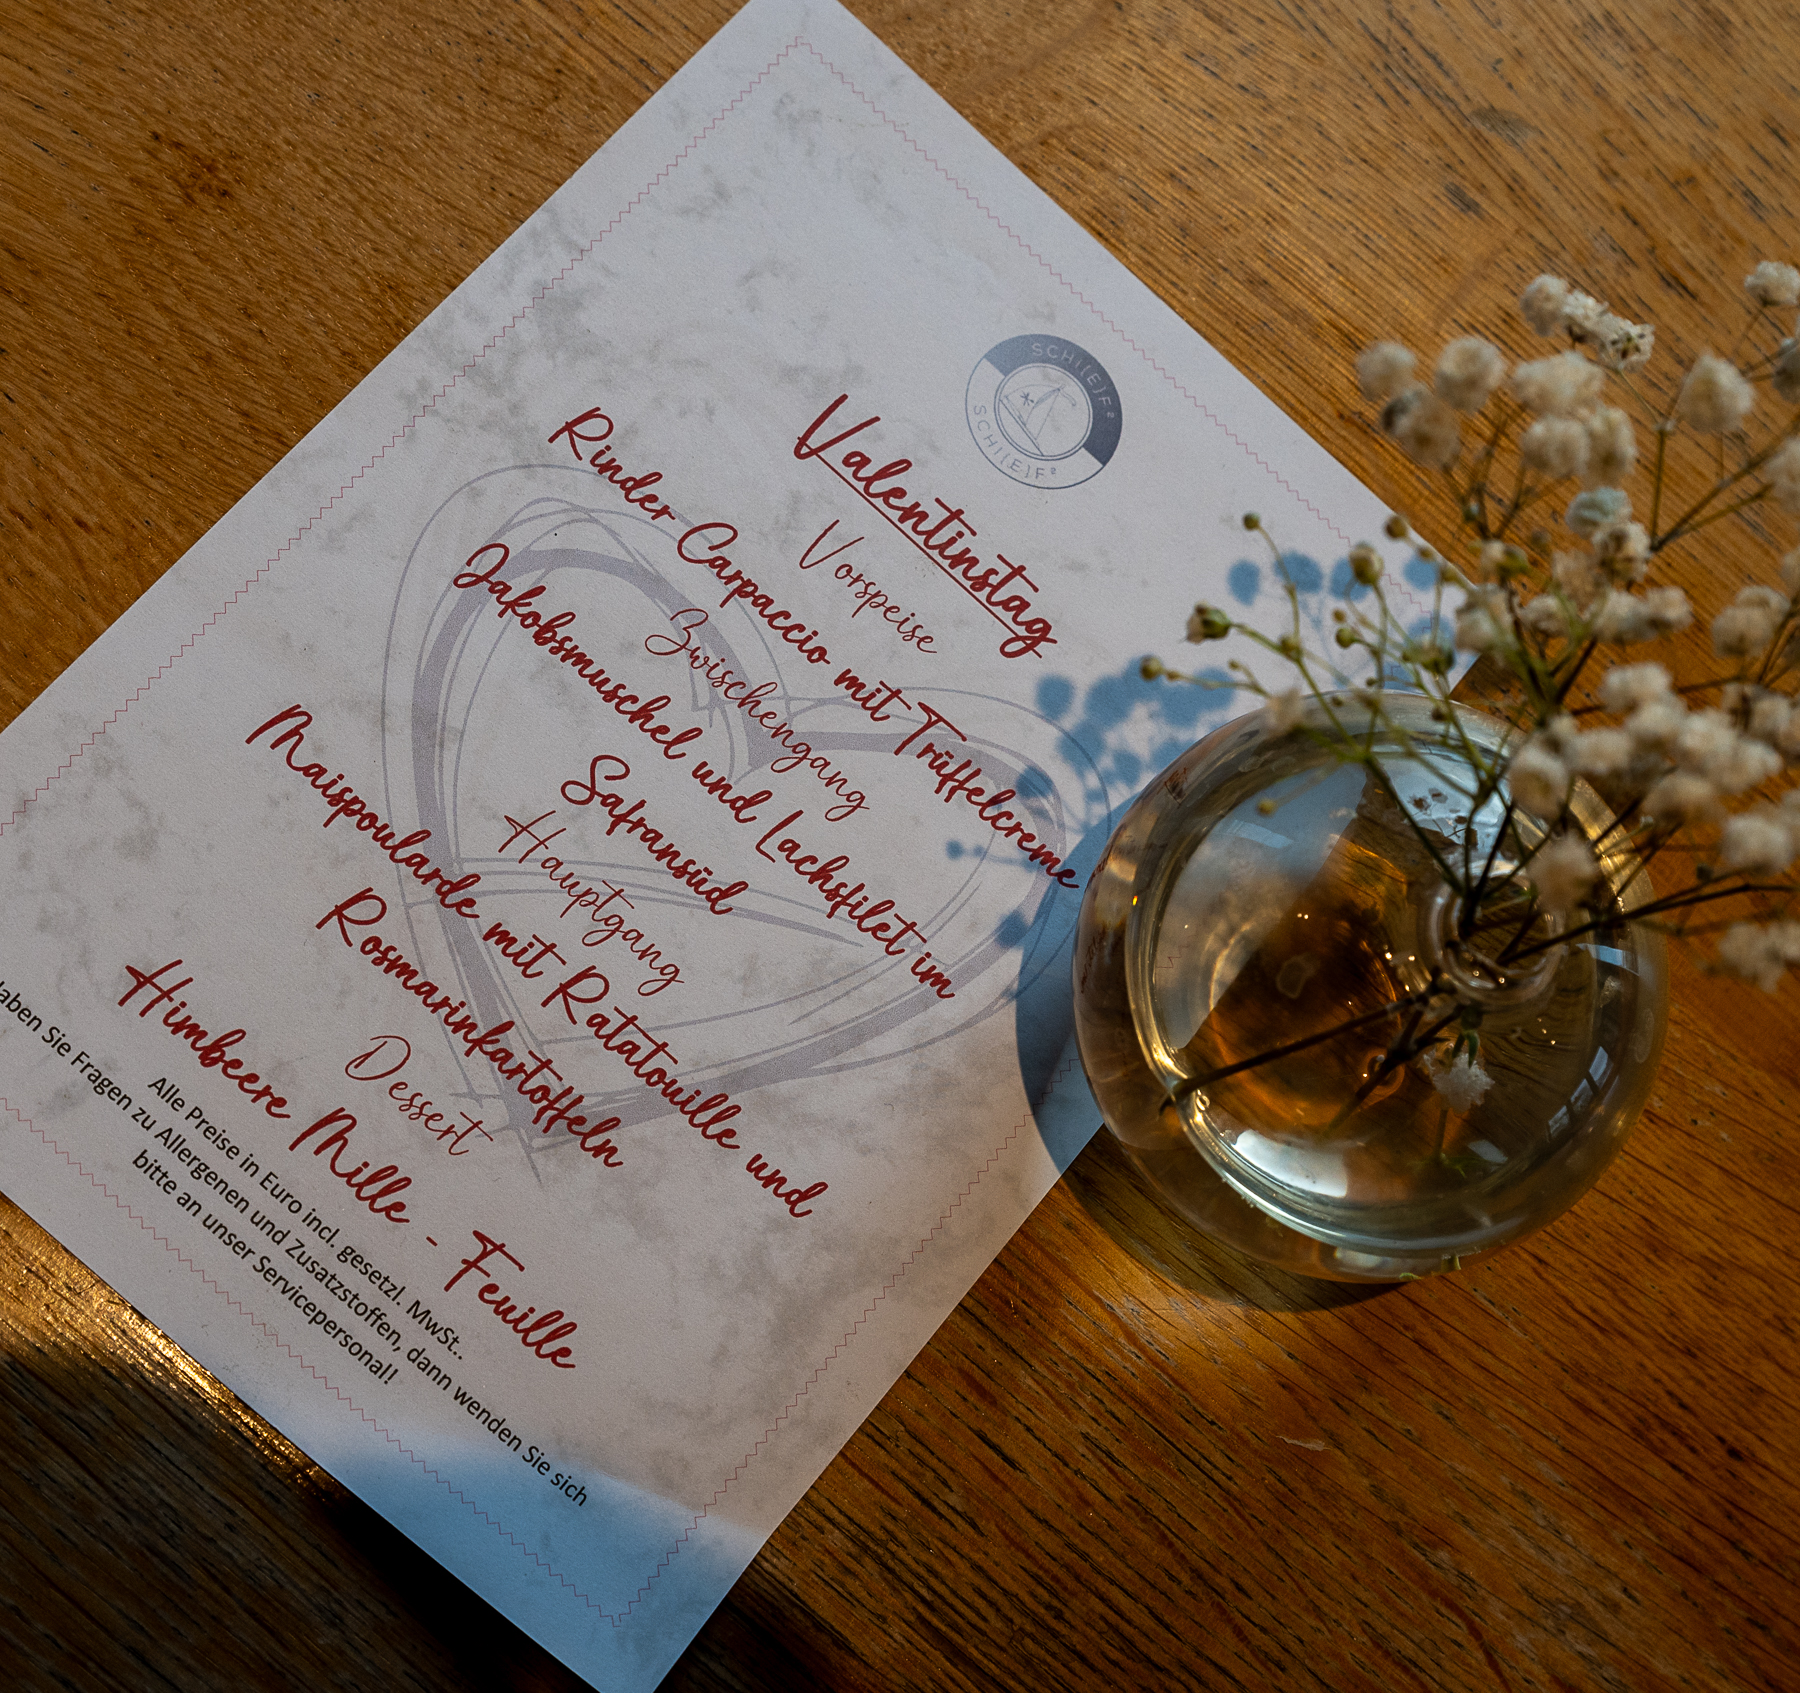 SCHI(E)F²
SCHI(E)F²
Valentinstag
Vorspeise
Rinder Carpaccio mit Trüffelcreme
Zwischengang
Jakobsmuschel und Lachsfilet im
Safransüd
Hauptgang
Maispoularde mit Ratatouille und
Rosmarinkartoffeln
Dessert
Himbeere Mille - Feuille
Alle Preise in Euro incl. gesetzl. MwSt..
aben Sie Fragen zu Allergenen und Zusatzstoffen, dann wenden Sie sich
bitte an unser Servicepersonal!